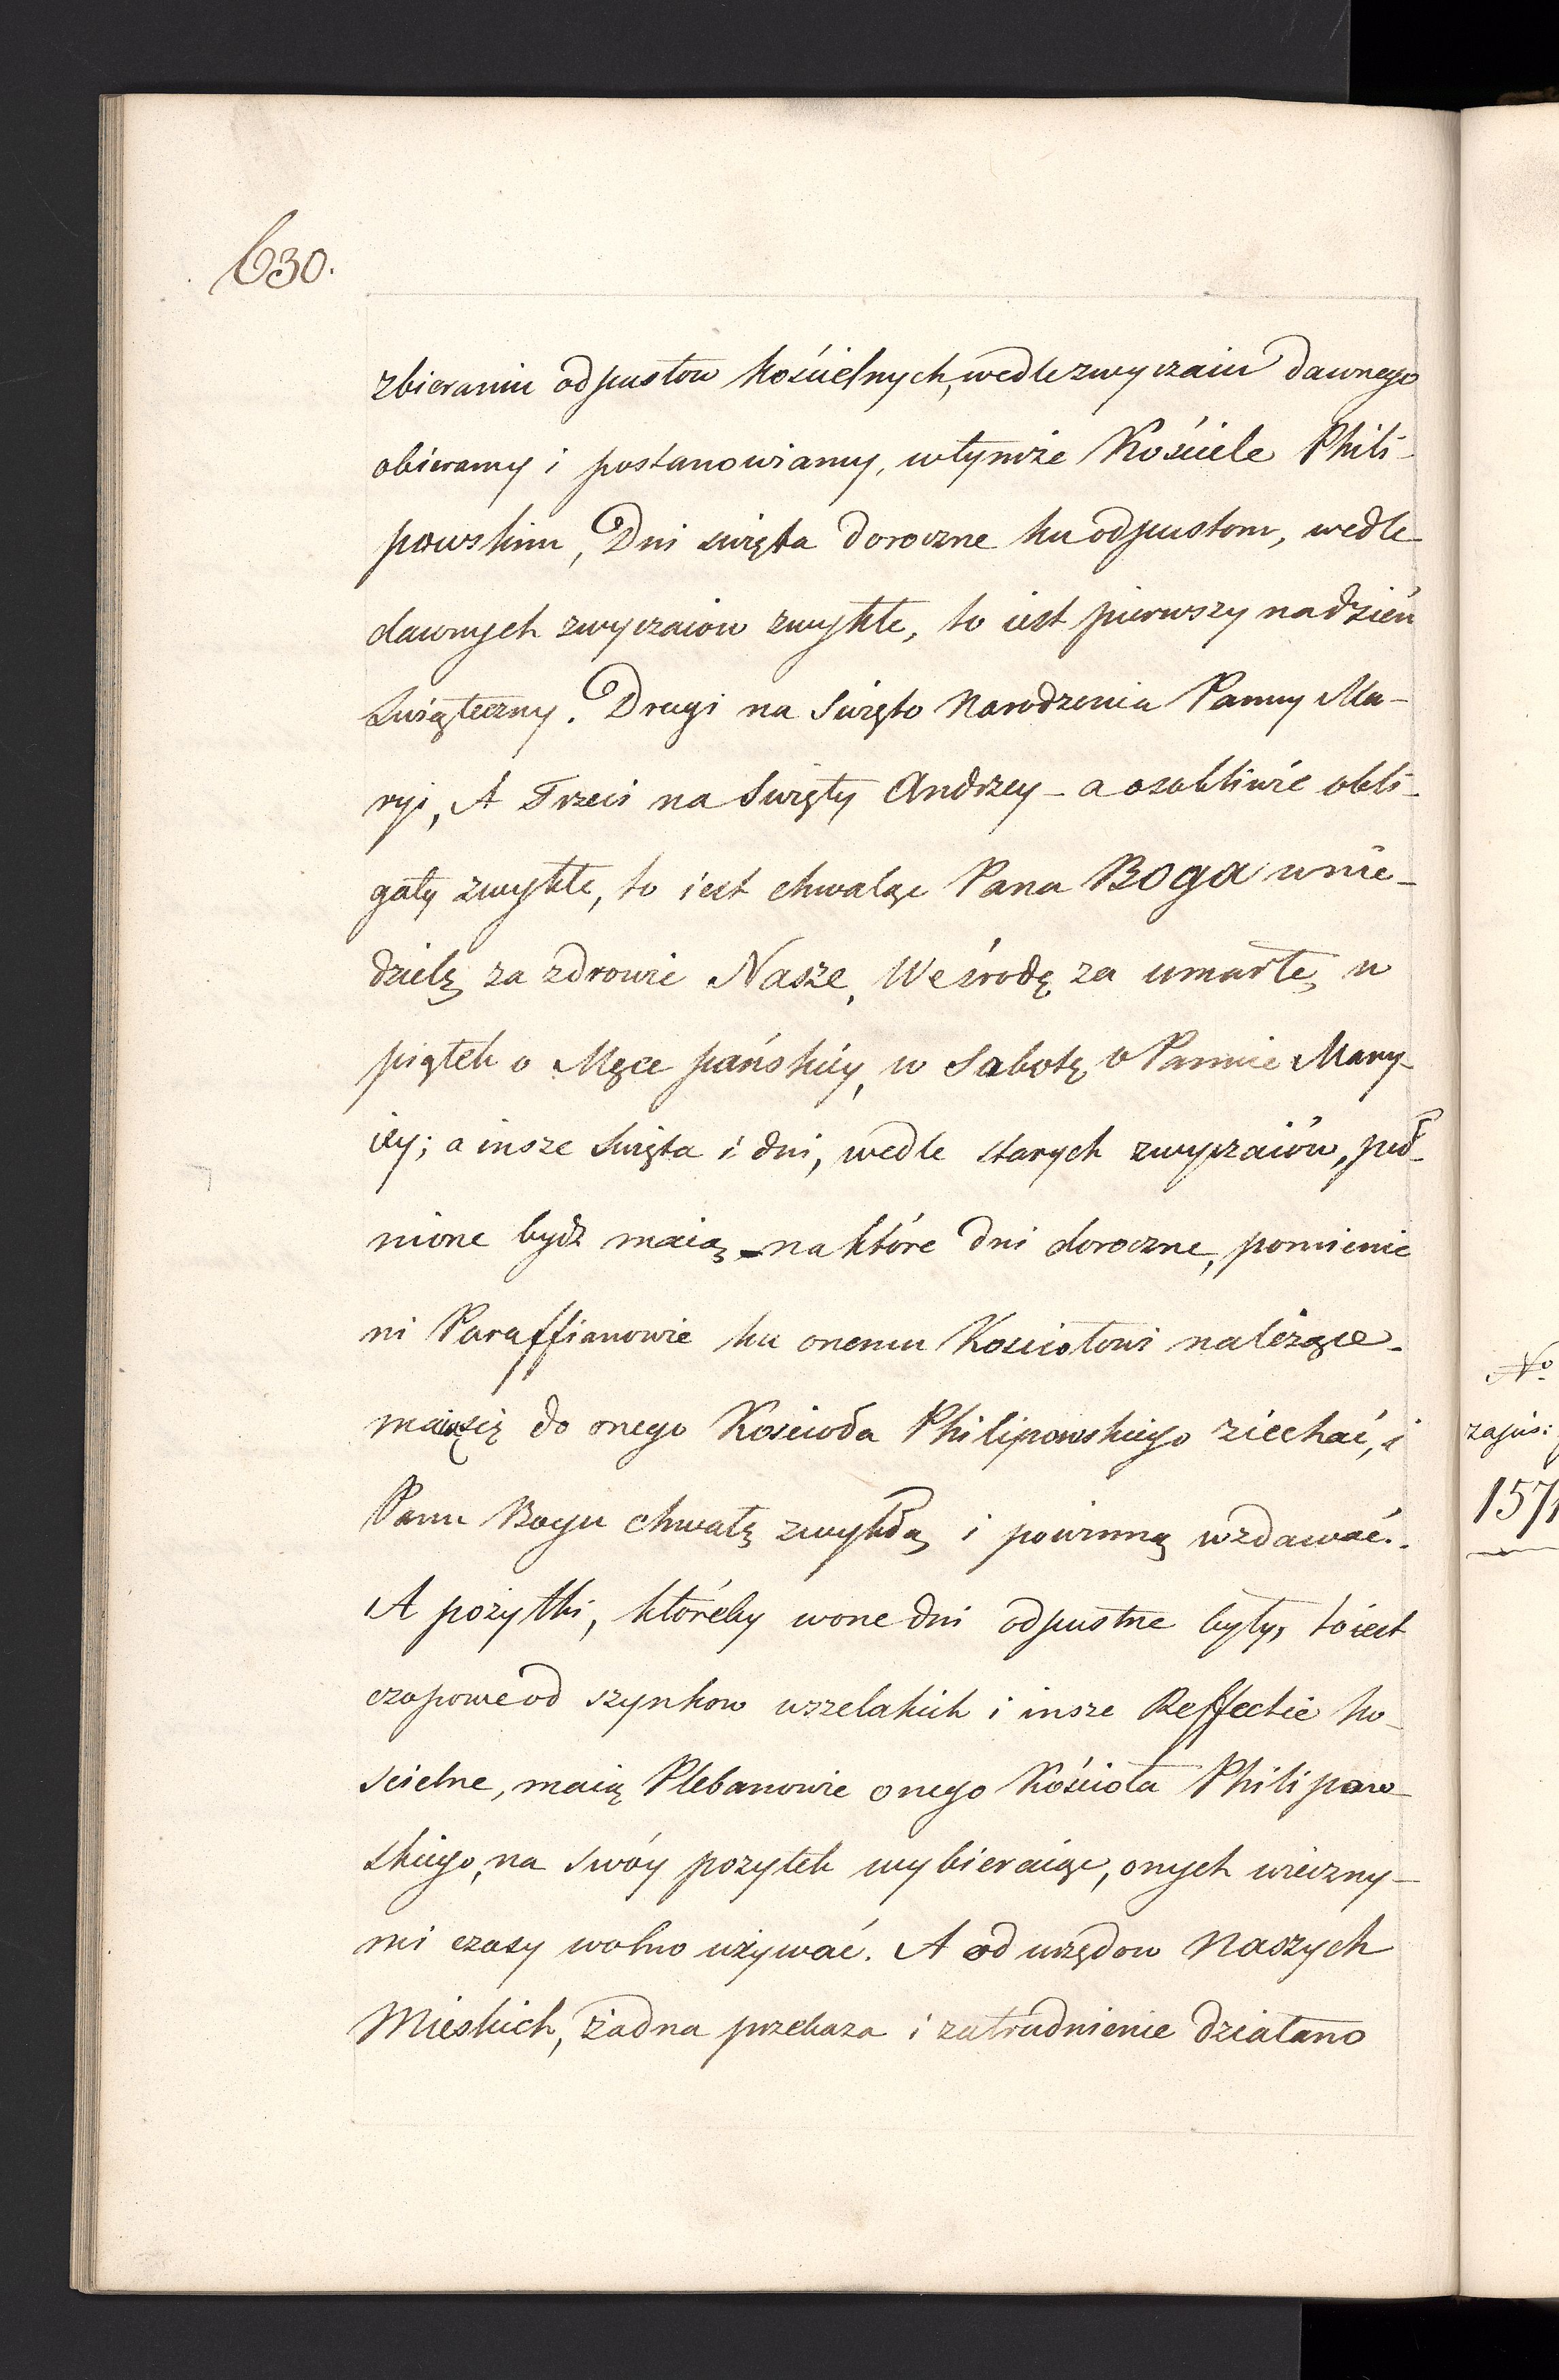 630.
zbieraniu odpustow kościelnych, wedle zwyczaiu dawnego
obieramy i postanowiamy, wtymże Kościele Phili-
powskim, Dni święta doroczne ku odpustom, wedle
dawnych zwyczaiow zwykłe, to iest pierwszy na dzień
Swiąteczny. Drugi na Swięto Narodzenia Panny Ma-
ryi, A Trzeci na Swięty Andrzey - a osobliwie obli-
gaty zwykłe, to iest chwaląc Pana Boga w nie-
dzielę za zdrowie Nasze, We środę za umarłe, w
piątek o Męce pańskiey, w Sabotę o Pannie Mary-
iey; a insze Swięta i dni, wedle starych zwyczaiów, peł-
nione bydź maią - na które dni doroczne, pomienie
ni Paraffianowie ku onemu Kosciołowi należące -
maią się do onego Koscioła Philipowskiego ziechać, i
Panu Bogu chwałę zwykłą i powinną wzdawać.
A pożytki, któreby w one dni odpustne były, to iest
czopowe od szynkow wszelakich i insze Reffectie ko-
scielne, maią Plebanowie onego Kościoła Philipow-
skiego, na swóy pozytek wybieraiąc, onych wieczny-
mi czasy wolno używać. A od urzędow Naszych
Mieskich, żadna przekaza i zatrudnienie działano
No
zajus:
1571